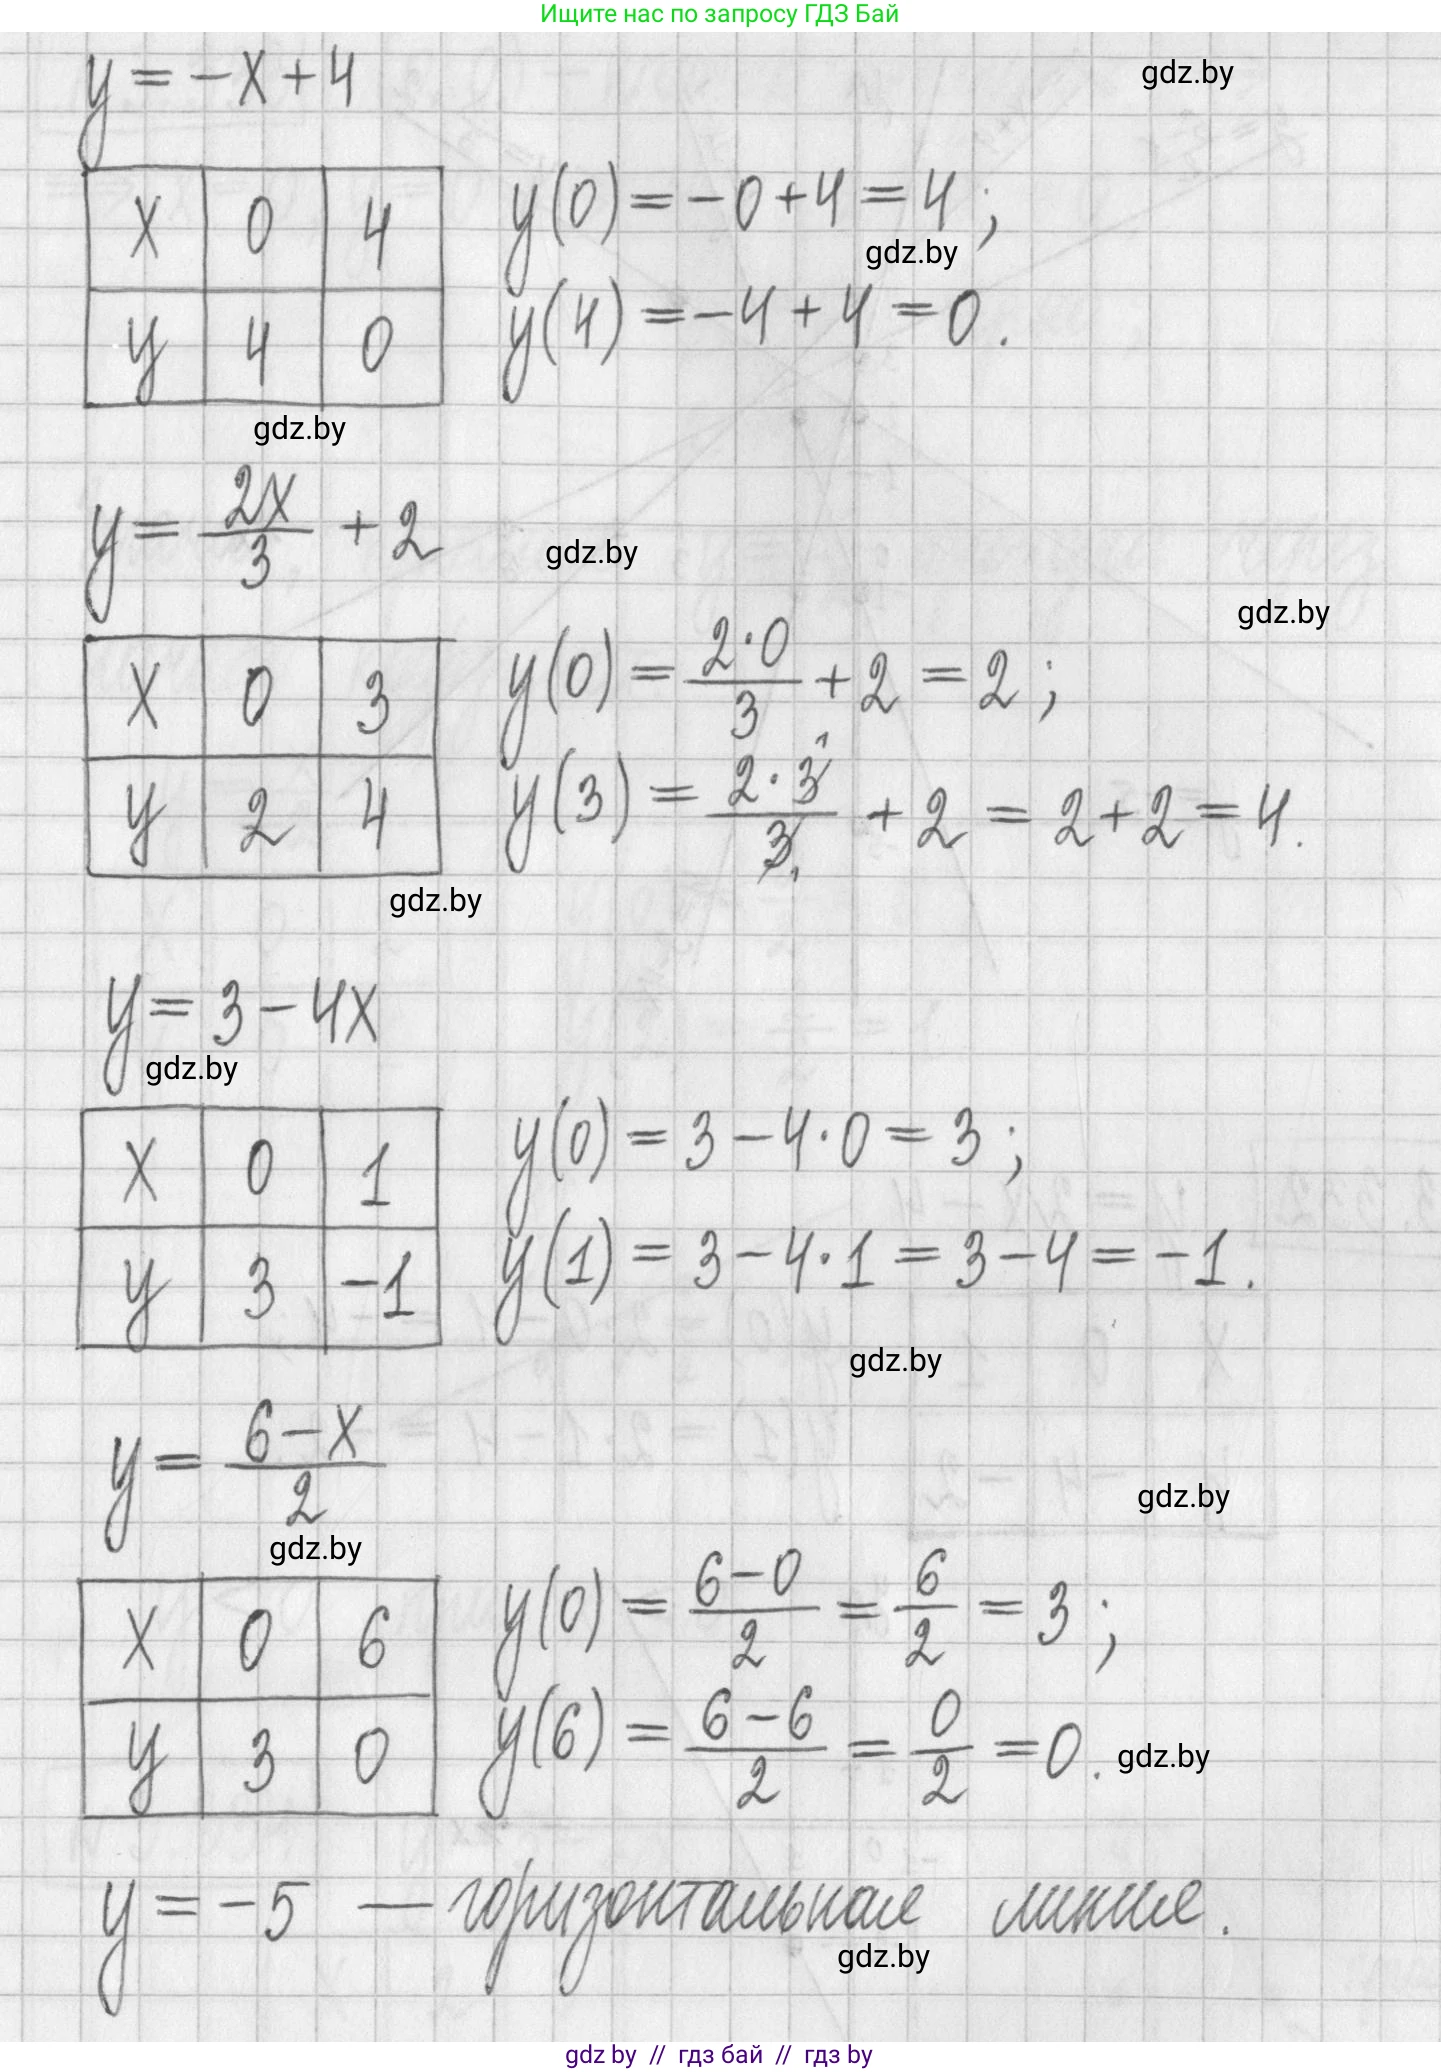 Ищите нас по запросу ГДЗ Бай
y = -x + 4
gdz.by
x 0 4
y 4 0
y(0) = -0 + 4 = 4;
gdz.by
y(4) = -4 + 4 = 0.
gdz.by
y = 2x/3 + 2
gdz.by
gdz.by
x 0 3
y 2 4
y(0) = 2·0/3 + 2 = 2;
y(3) = 2·3/3 + 2 = 2 + 2 = 4.
1
1
gdz.by
y = 3 - 4x
gdz.by
x 0 1
y 3 -1
y(0) = 3 - 4·0 = 3;
y(1) = 3 - 4·1 = 3 - 4 = -1.
gdz.by
y = 6-x/2
gdz.by
gdz.by
x 0 6
y 3 0
y(0) = 6-0/2 = 6/2 = 3;
y(6) = 6-6/2 = 0/2 = 0.
gdz.by
y = -5 — горизонтальная линия.
gdz.by
gdz by // гдз бай // гдз by